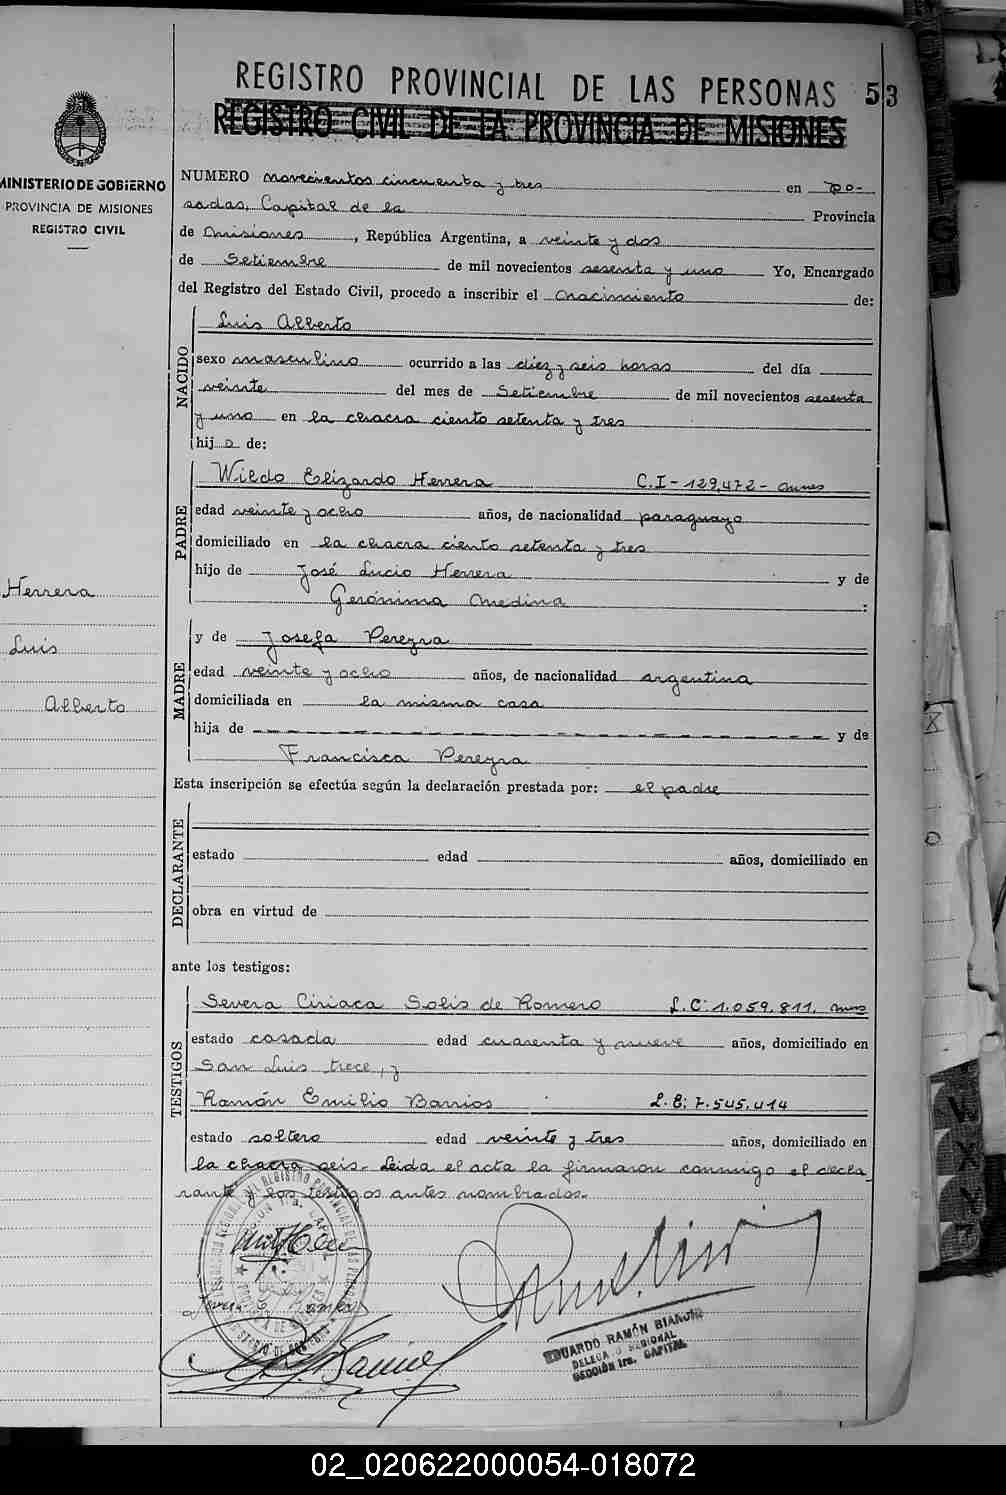 REGISTRO PROVINCIAL DE LAS PERSONAS 53
REGISTRO CIVIL DE LA PROVINCIA DE MISIONES
MINISTERIO DE GOBIERNO
PROVINCIA DE MISIONES
REGISTRO CIVIL
NUMERO novecientos cincuenta y tres en Po-
sadas, Capital de la Provincia
de Misiones, República Argentina, a veinte y dos
de Setiembre de mil novecientos sesenta y uno Yo, Encargado
del Registro del Estado Civil, procedo a inscribir el Nacimiento de:
NACIDO
Luis Alberto
sexo masculino ocurrido a las diez y seis horas del día
veinte del mes de Setiembre de mil novecientos sesenta
y uno en la chacra ciento setenta y tres
hijo de:
PADRE
Wildo Elizardo Herrera C.I-129,472-Mnes
edad veinte y ocho años, de nacionalidad paraguayo
domiciliado en la chacra ciento setenta y tres
hijo de José Lucio Herrera y de
Gerónima Medina :
Herrera
Luis
Alberto
MADRE
y de Josefa Pereyra
edad veinte y ocho años, de nacionalidad argentina
domiciliada en la misma casa
hija de y de
Francisca Pereyra
Esta inscripción se efectúa según la declaración prestada por: el padre
DECLARANTE
estado edad años, domiciliado en
obra en virtud de
ante los testigos:
TESTIGOS
Severa Ciriaca Solis de Romero L.C: 1.059.811, Mnes
estado casada edad cuarenta y nueve años, domiciliado en
San Luis trece, y
Ramón Emilio Barrios L.E: 7.545.414
estado soltero edad veinte y tres años, domiciliado en
la chacra seis- Leida el acta la firmaron conmigo el decla
rante y los testigos antes nombrados-
EDUARDO RAMÓN BIANCHI
DELEGADO REGIONAL
SECCIÓN 1ra. CAPITAL
02_020622000054-018072